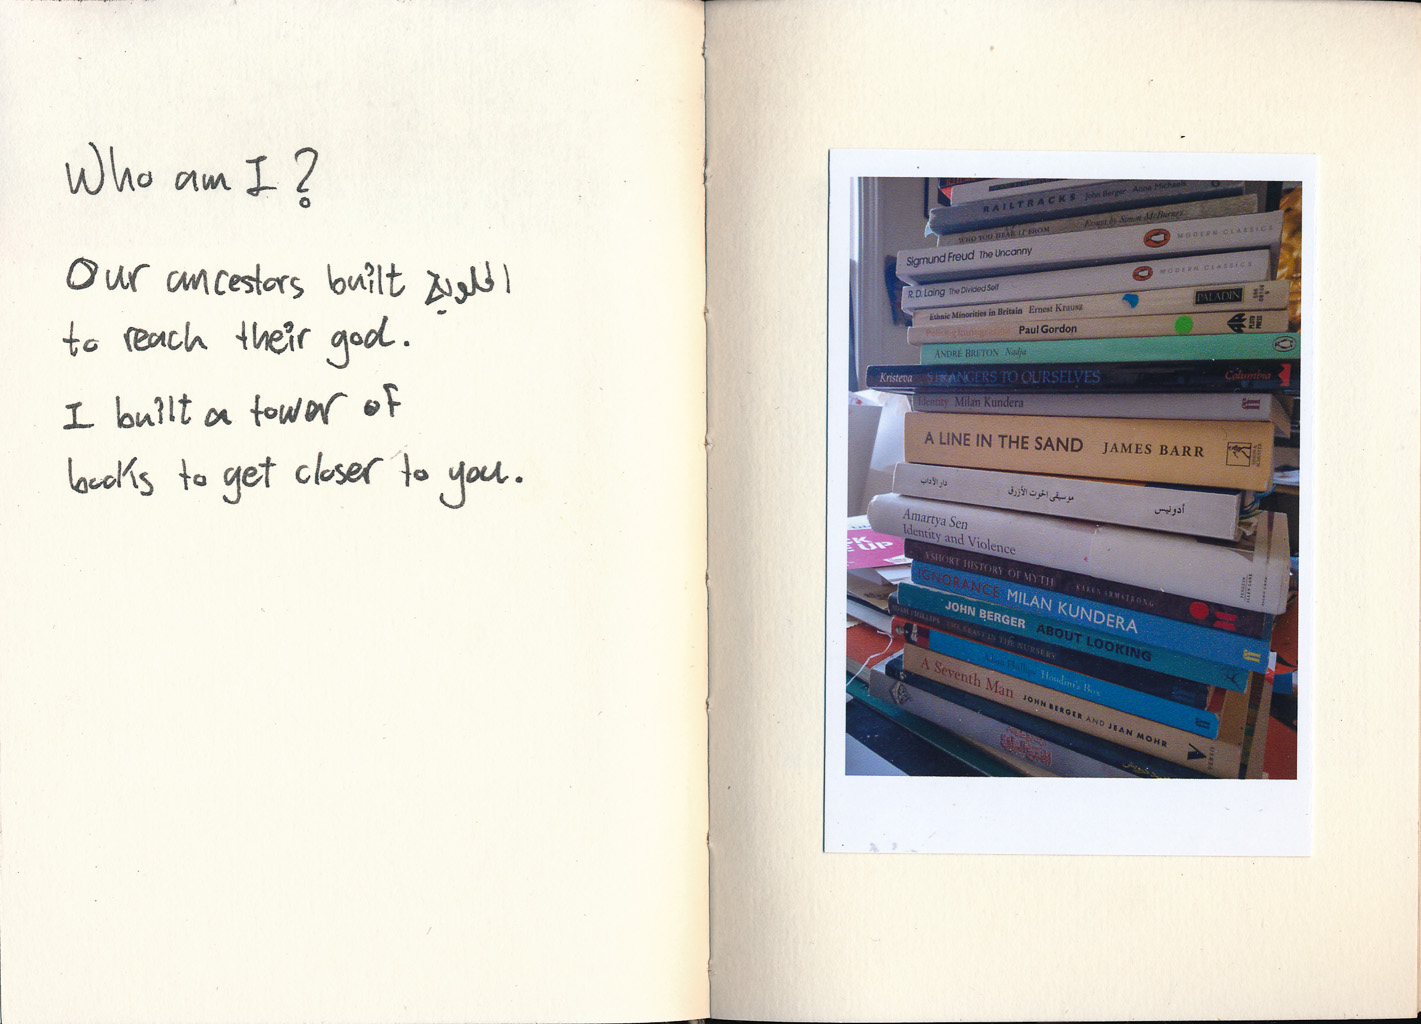 Who am I?
Our ancestors built الملوية
to reach their god.
I built a tower of
books to get closer to you.
RAILTRACKS John Berger Anne Michaels
WHO YOU HEAR IT FROM Essays by Simon McBurney
Sigmund Freud The Uncanny MODERN CLASSICS
R. D. Laing The Divided Self MODERN CLASSICS
Ethnic Minorities in Britain Ernest Krausz PALADIN
Paul Gordon PLUTO PRESS
ANDRÉ BRETON Nadja
Kristeva STRANGERS TO OURSELVES Columbia
Identity Milan Kundera ff
A LINE IN THE SAND JAMES BARR
أدونيس موسيقى الحوت الأزرق دار الآداب
Amartya Sen
Identity and Violence
A SHORT HISTORY OF MYTH KAREN ARMSTRONG
IGNORANCE MILAN KUNDERA ff
JOHN BERGER ABOUT LOOKING
ADAM PHILLIPS THE BEAST IN THE NURSERY
Adam Phillips Houdini's Box
A Seventh Man JOHN BERGER AND JEAN MOHR VERSO